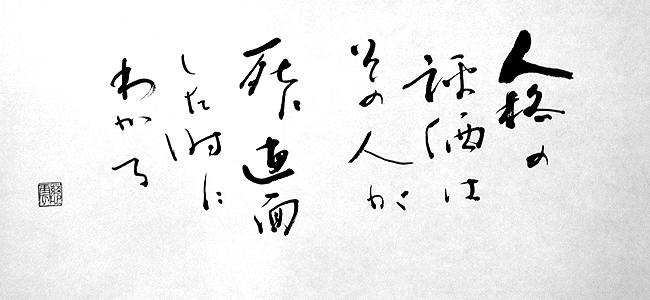 人格の
評価は
その人が
死に直面
した時に
わかる